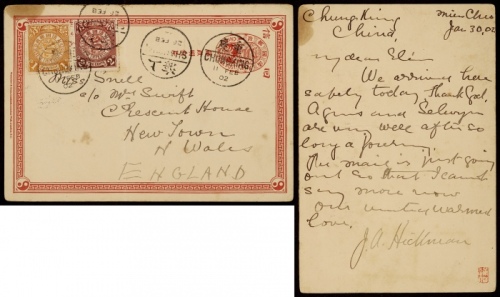 Miss Snell
c/o Mrs Swift
Crescent House
New Town
N Wales
ENGLAND
CHUNGKING
FEB
02
Chung King
China,
Mien Chu
Jan 30, 02
My dear Elsie
We arrived here
safely today thank God,
Agnes and Selwyn
are very well after so
long a journey.
The mail is just going
out so that I cannot
say more now
with united warmest
love.
J. A. Hickman